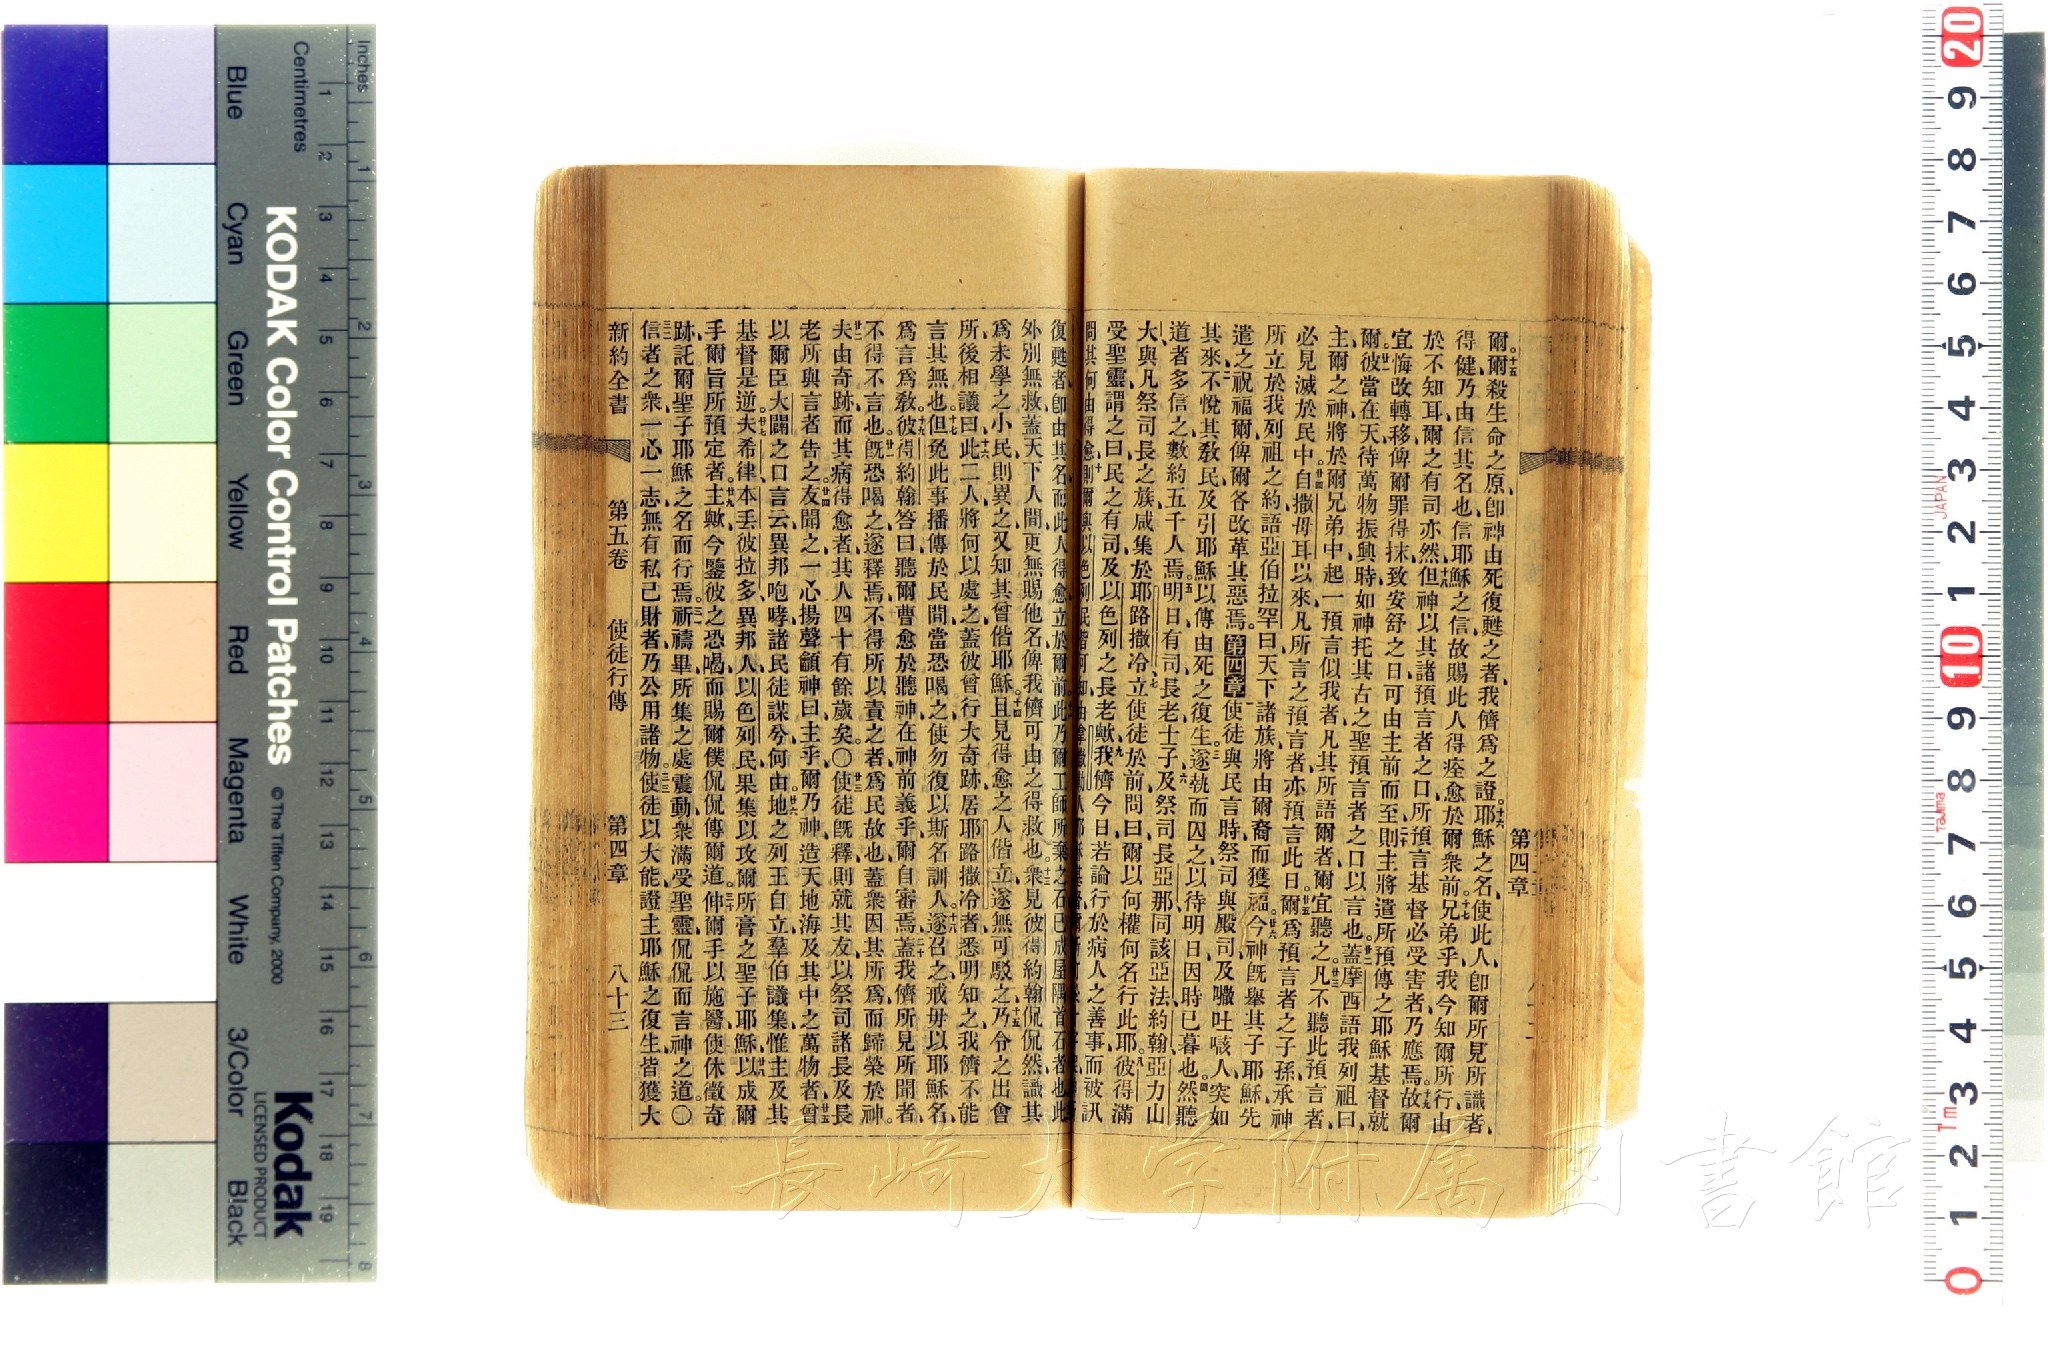 爾爾殺生命之原卽神由死復甦之者我儕爲之證耶穌之名使此人卽爾所見所識者
得健乃由信其名也信耶穌之信故賜此人得痊愈於爾衆前兄弟乎我今知爾所行由
於不知耳爾之有司亦然但神以其諸預言者之口所預言基督必受害者乃應焉故爾
宜悔改轉移俾爾罪得抹致安舒之日可由主前而至則主將遣所預傳之耶穌基督就
爾彼當在天待萬物振興時如神托其古之聖預言者之口以言也蓋摩西語我列祖曰
主爾之神將於爾兄弟中起一預言似我者凡其所語爾者爾宜聽之凡不聽此預言者
必見滅於民中自撒母耳以來凡所言之預言者亦預言此日爾爲預言者之子孫承神
所立於我列祖之約語亞伯拉罕曰天下諸族將由爾裔而獲福今神旣舉其子耶穌先
遣之祝福爾俾爾各改革其惡焉第四章使徒與民言時祭司與殿司及㘔吐㗒人突如
其來不悅其敎民及引耶穌以傳由死之復生遂執而囚之以待明日因時已暮也然聽
道者多信之數約五千人焉明日有司長老士子及祭司長亞那同該亞法約翰亞力山
大與凡祭司長之族咸集於耶路撒冷立使徒於前問曰爾以何權何名行此耶彼得滿
受聖靈謂之曰民之有司及以色列之長老歟我儕今日若論行於病人之善事而被訊
復甦者卽由其名而此人得愈立於爾前此乃爾工師所棄之石已成屋隅首石者也此
外別無救蓋天下人間更無賜他名俾我儕可由之得救也衆見彼得約翰侃侃然識其
爲未學之小民則異之又知其曾偕耶穌且見得愈之人偕立遂無可駁之乃令之出會
所後相議曰此二人將何以處之蓋彼曾行大奇跡居耶路撒冷者悉明知之我儕不能
言其無也但免此事播傳於民間當恐喝之使勿復以斯名訓人遂召之戒毋以耶穌名
爲言爲敎彼得約翰答曰聽爾曹愈於聽神在神前義乎爾自審焉蓋我儕所見所聞者
不得不言也旣恐喝之遂釋焉不得所以責之者爲民故也蓋衆因其所爲而歸榮於神
夫由奇跡而其病得愈者其人四十有餘歲矣〇使徒旣釋則就其友以祭司諸長及長
老所與言者告之友聞之一心揚聲籲神曰主乎爾乃神造天地海及其中之萬物者曾
以爾臣大闢之口言云異邦咆哮諸民徒謀兮何由地之列王自立羣伯議集惟主及其
基督是逆夫希律本丢彼拉多異邦人以色列民果集以攻爾所膏之聖子耶穌以成爾
手爾旨所預定者主歟今鑒彼之恐喝而賜爾僕侃侃傳爾道伸爾手以施醫使休徵奇
跡託爾聖子耶穌之名而行焉祈禱畢所集之處震動衆滿受聖靈侃侃而言神之道〇
信者之衆一心一志無有私己財者乃公用諸物使徒以大能證主耶穌之復生皆獲大
新約全書 第五卷 使徒行傳 第四章 八十三
第四章
長崎大学附属図書館
Inches
Centimetres
KODAK Color Control Patches
© The Tiffen Company, 2000
Kodak
LICENSED PRODUCT
Blue Cyan Green Yellow Red Magenta White 3/Color Black
1 2 3 4 5 6 7 8 9 10 11 12 13 14 15 16 17 18 19
1 2 3 4 5 6 7 8
20 9 8 7 6 5 4 3 2 1 10 9 8 7 6 5 4 3 2 1 0
JAPAN
Tajima